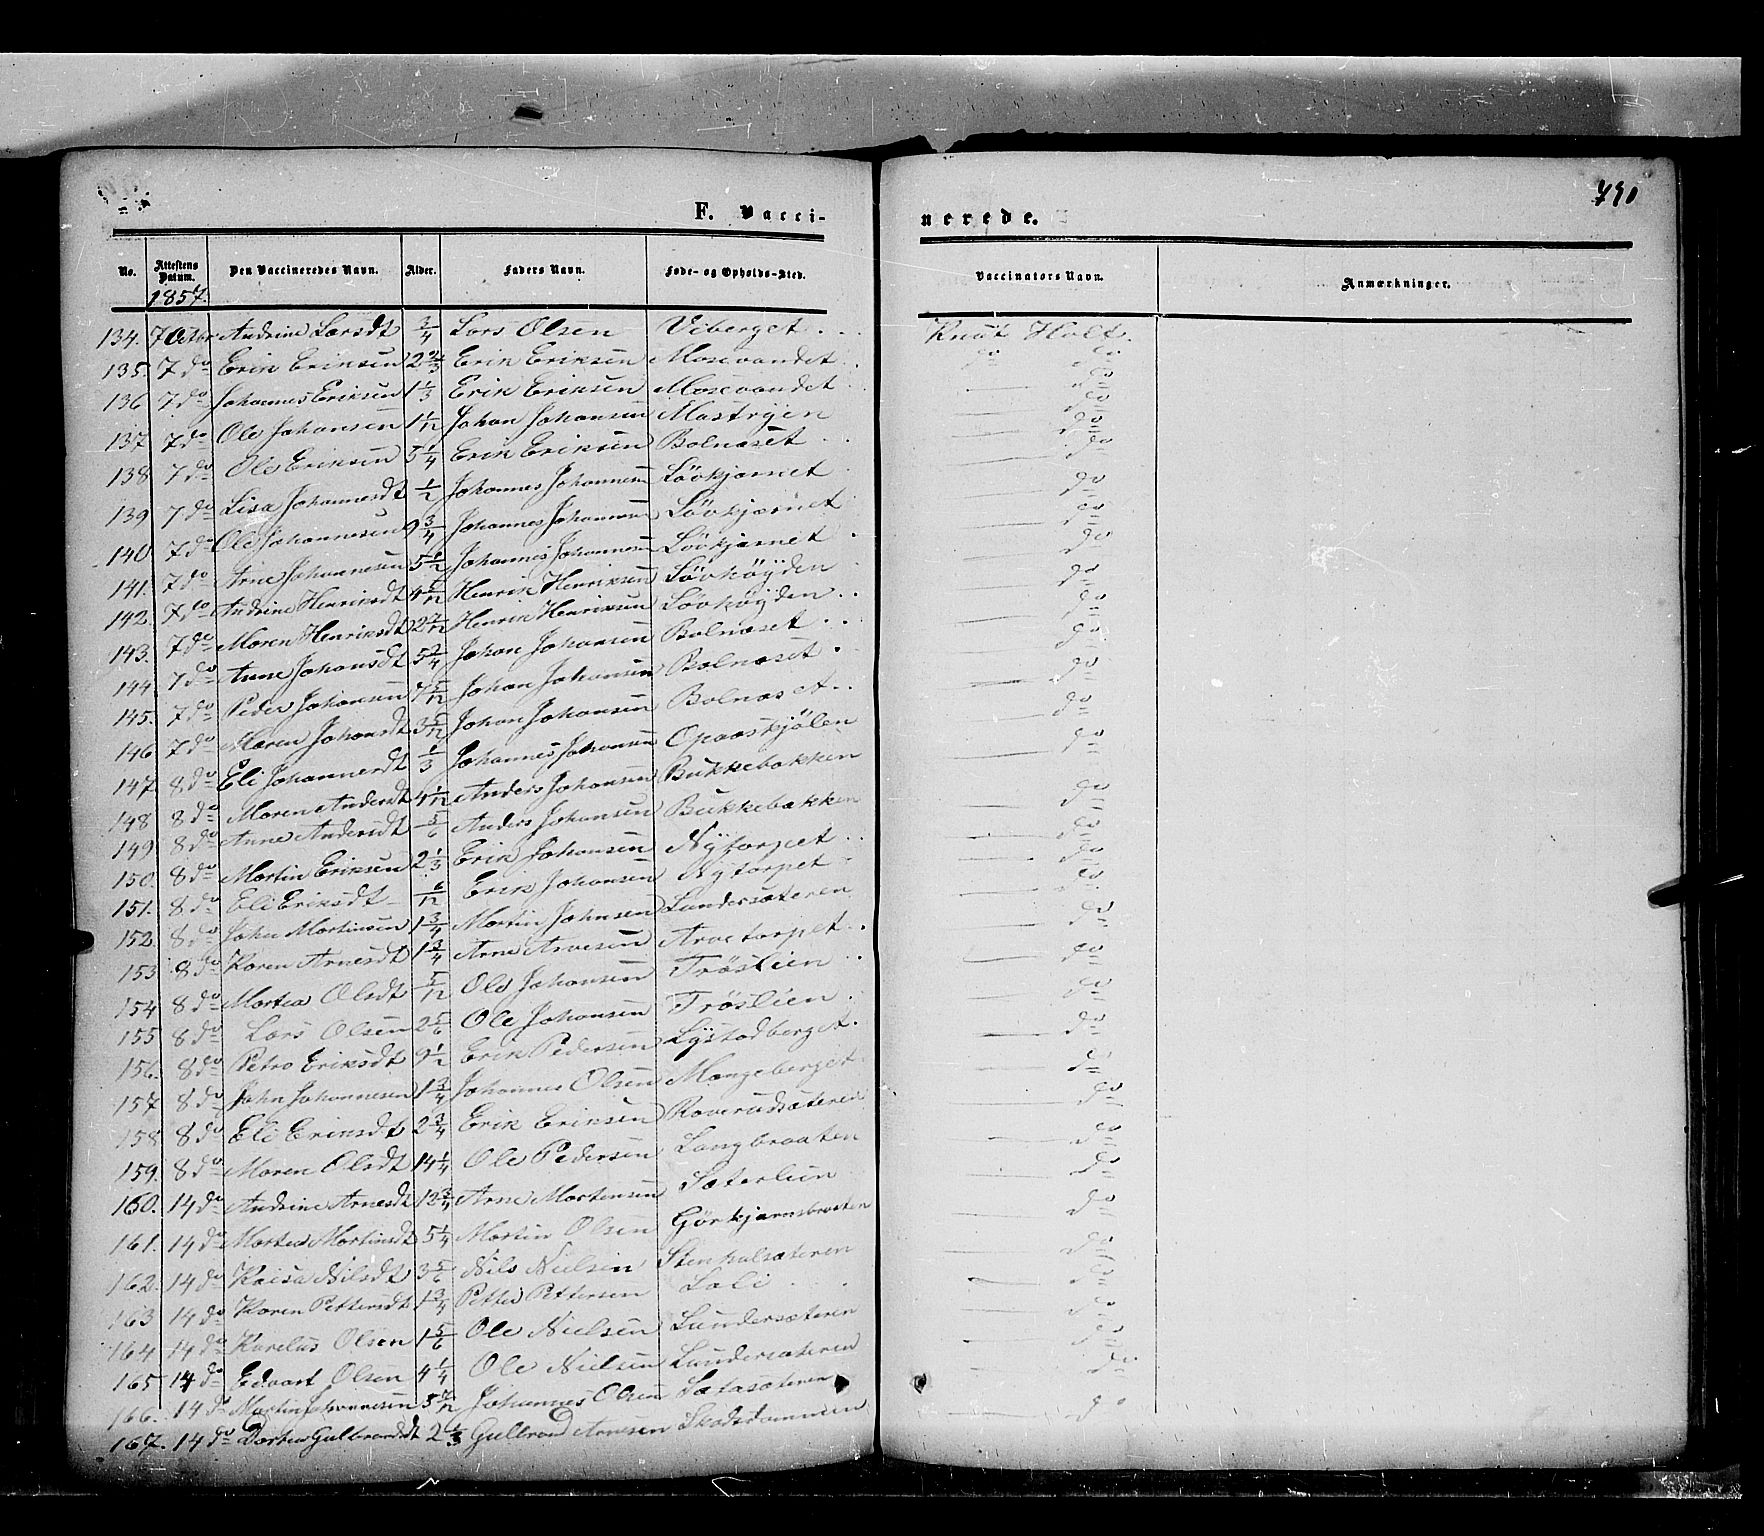 790
F. Vacci-
nerede.
No. Attestens Datum. Den Vaccineredes Navn. Alder. Faders Navn. Føde- og Opholds-Sted. Vaccinators Navn. Anmærkninger.
1857.
134. 7 Octbr Andrine Larsdt 3/4 Lars Olsen Viberget Knut Holt.
135. 7 do Erik Eriksen 2 2/3 Erik Eriksen Mosevandet do do
136 7 do Johannes Eriksen 1 1/3 Erik Eriksen Mosevandet do
137 7 do Ole Johansen 1 1/12 Johan Johansen Mastryen do
138 7 do Ole Eriksen 5 1/4 Erik Eriksen Bolnæset do
139 7 do Lisa Johannesdt 1/2 Johannes Johannesen Lövkjærnet do
140 7 do Ole Johannesen 9 3/4 Johannes Johannesen Lövkjærnet do
141. 7 do Arne Johannesen 5 1/2 Johannes Johannesen Lövkjærnet do
142. 7 do Andrine Henriksdt Henrik Henriksen Lövhöyden do
143. 7 do Maren Henriksdt 2 7/12 Henrik Henriksen Lövhöyden do
144 7 do Anne Johansdt Johan Johansen Bolnæset do
145. 7 do Peder Johansen 7 5/12 Johan Johansen Bolnæset do
146 7 do Maren Johansdt 3 5/12 Johan Johansen Bolnæset do
147 8 do Eli Johannesdt 1/3 Johannes Johansen Opaaskjölen do
148 8 do Maren Andersdt 4 1/12 Anders Johansen Bukkebakken do
149 8 do Anne Andersdt 5/6 Anders Johansen Bukkebakken do
150. 8 do Martin Eriksen 2 1/3 Erik Johansen Nytorpet do
151. 8 do Eli Eriksdt Erik Johansen Nytorpet do
152 8 do John Martinsen 1 3/4 Martin Johnsen Lundersæteren do
153 8 do Karen Arnesdt 1 3/4 Arne Arnesen Arnetorpet do
154 8 do Martea Olsdt 5/12 Ole Johansen Tröslien do
155 8 do Lars Olsen 2 5/6 Ole Johansen Tröslien do
156. 8 do Petro Eriksdt 9 1/2 Erik Pedersen Lystadberget do
157 8 do John Johannesen 1 3/4 Johannes Olsen Mangeberget do
158 8 do Eli Eriksdt 2 3/4 Erik Eriksen Roverudsæteren do
159. 8 do Maren Olsdt 14 1/4 Ole Pedersen Langbraaten do
160. 14 do Andrine Arnesdt 12 3/4 Arne Mortensen Sæterlien do
161. 14 do Martea Martinsdt 5 1/4 Martin Olsen Görkjærnsbraaten do
162. 14 do Kaisa Nilsdt 3 5/6 Nils Nielsen Stenhalsæteren do
163 14 do Karen Pettersdt 1 3/4 Petter Pettersen Lali do
164 14 do Karelus Olsen 1 5/6 Ole Nielsen Lundersæteren do
165 14 do Edvart Olsen 4 1/4 Ole Nielsen Lundersæteren do
166. 14 do Martin Johannesen 5 7/12 Johannes Olsen Sætasæteren do
167. 14 do Dortea Gulbrandsdt 2 1/3 Gulbrand Arnesen Skadsdammen do